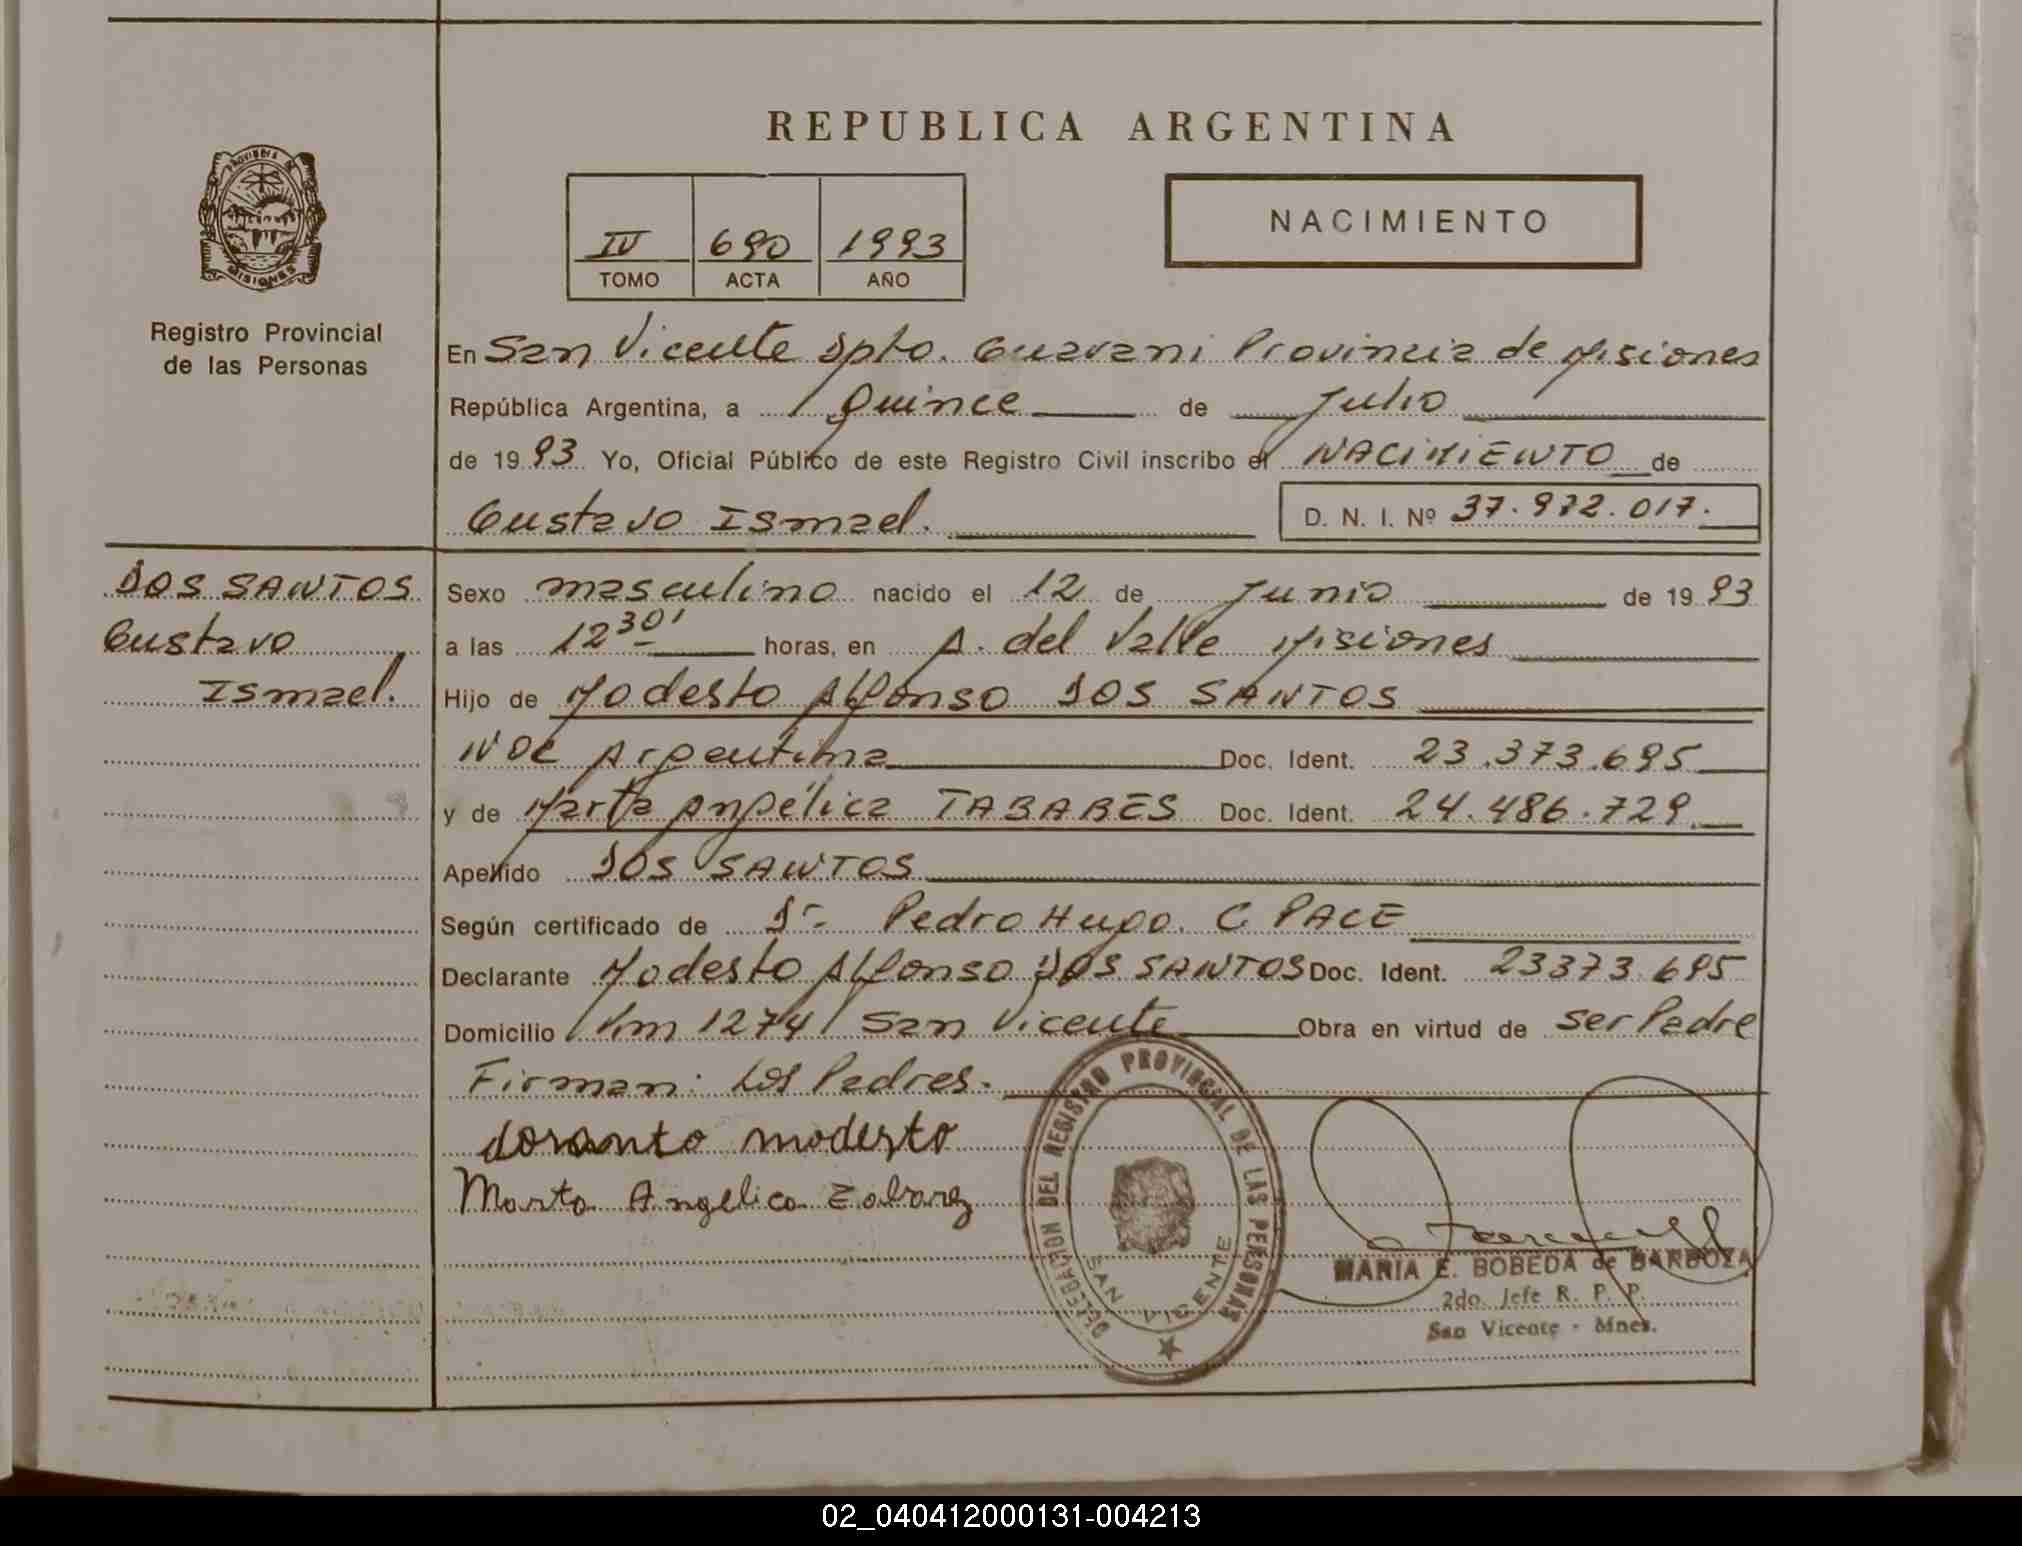 REPUBLICA ARGENTINA
PROVINCIA DE MISIONES
Registro Provincial
de las Personas
IV 690 1993
TOMO ACTA AÑO
NACIMIENTO
En San Vicente Dpto. Guarani Provincia de Misiones
República Argentina, a Quince de Julio
de 1993 Yo, Oficial Público de este Registro Civil inscribo el NACIMIENTO de
Gustavo Ismael. D. N. I. Nº 37.972.017.
DOS SANTOS
Gustavo
Ismael.
Sexo masculino nacido el 12 de Junio de 1993
a las 12 30' horas, en A. del Valle Misiones
Hijo de Modesto Alfonso DOS SANTOS
Nac Argentina Doc. Ident. 23.373.695
y de Marta Angélica TABARES Doc. Ident. 24.486.729
Apellido DOS SANTOS
Según certificado de Dr. Pedro Hugo. C PACE
Declarante Modesto Alfonso DOS SANTOS Doc. Ident. 23373.695
Domicilio Km 1274 San Vicente Obra en virtud de ser Padre
Firman: Los Padres.
dosanto modesto
Marta Angelica Tabarez
DELEGACION DEL REGISTRO PROVINCIAL DE LAS PERSONAS
SAN VICENTE
MARIA E. BOBEDA de BARBOZA
2do. Jefe R. P. P.
San Vicente - Mnes.
02_040412000131-004213